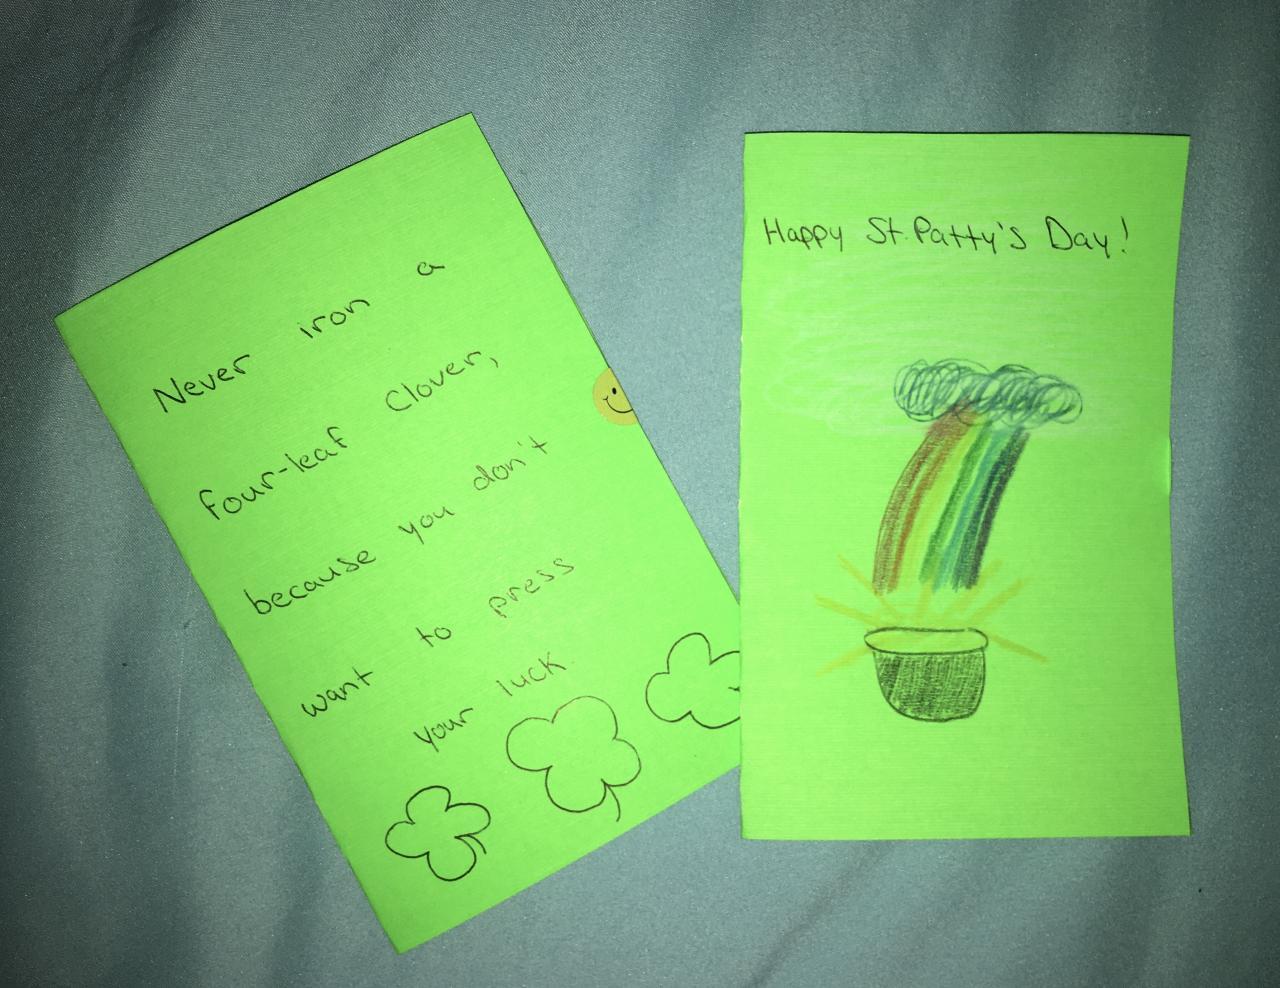 Never iron a
four-leaf Clover,
because you don't
want to press
your luck.
Happy St. Patty's Day!